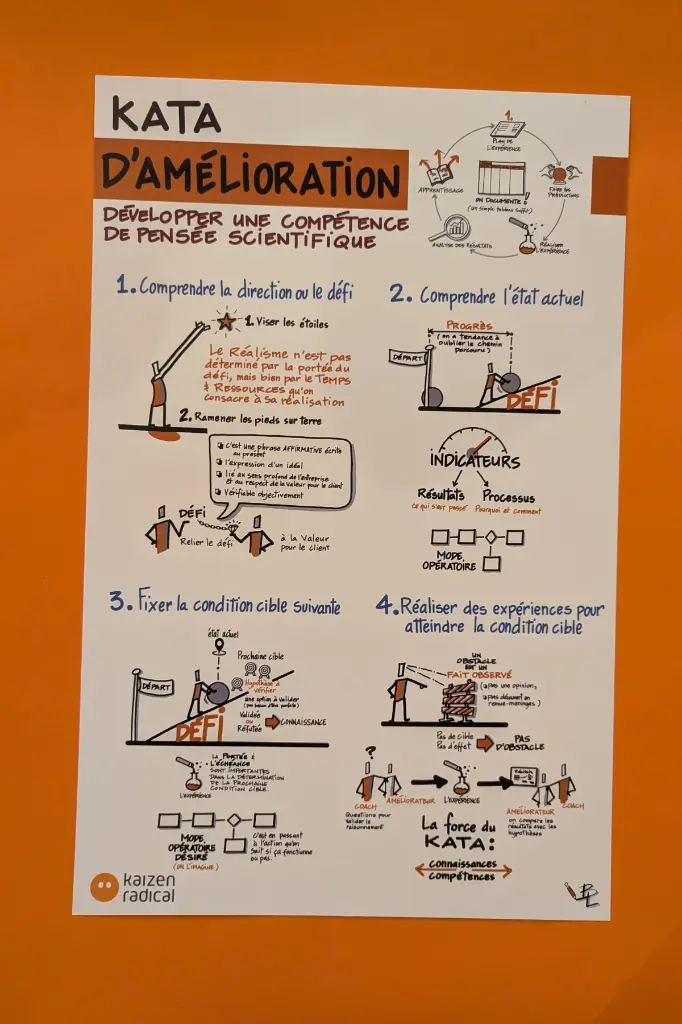 KATA
D'AMÉLIORATION
DÉVELOPPER UNE COMPÉTENCE
DE PENSÉE SCIENTIFIQUE
1.
PLAN DE
L'EXPÉRIENCE
FAIRE DES
PRÉDICTIONS
RÉALISER
L'EXPÉRIENCE
ANALYSE DES RÉSULTATS
APPRENTISSAGE
ON DOCUMENTE!
(un simple tableau suffit)
1. Comprendre la direction ou le défi
1. Viser les étoiles
Le Réalisme n'est pas
déterminé par la portée du
défi, mais bien par le TEMPS
& RESSOURCES qu'on
consacre à sa réalisation
2. Ramener les pieds sur terre
c'est une phrase AFFIRMATIVE écrite
au présent
l'expression d'un idéal
lié au sens profond de l'entreprise
et au respect de la valeur pour le client
Vérifiable objectivement
DÉFI
Relier le défi
à la Valeur
pour le client
2. Comprendre l'état actuel
PROGRÈS
(on a tendance à
oublier le chemin
parcouru)
DÉPART
DÉFI
INDICATEURS
Résultats
ce qui s'est passé
Processus
Pourquoi et comment
MODE
OPÉRATOIRE
3. Fixer la condition cible suivante
état actuel
Prochaine cible
Hypothèse à
vérifier
une option à valider
DÉPART
DÉFI
Validée
ou
Réfutée
CONNAISSANCE
L'EXPÉRIENCE
LA PORTÉE &
L'ÉCHÉANCE
SONT IMPORTANTES
DANS LA DÉTERMINATION
DE LA PROCHAINE
CONDITION CIBLE.
MODE
OPÉRATOIRE
DÉSIRÉ
(ON L'IMAGINE)
c'est en passant
à l'action qu'on
sait si ça fonctionne
ou pas.
4. Réaliser des expériences pour
atteindre la condition cible
UN
OBSTACLE
EST UN
FAIT OBSERVÉ
(pas une opinion,
pas
remue-méninges)
Pas de cible
Pas d'effet
PAS
D'OBSTACLE
?
COACH
AMÉLIORATEUR
Questions pour
valider le
raisonnement
L'EXPÉRIENCE
Résultats
AMÉLIORATEUR
COACH
on compare les
résultats avec les
hypothèses
La force du
KATA:
connaissances
compétences
kaizen
radical